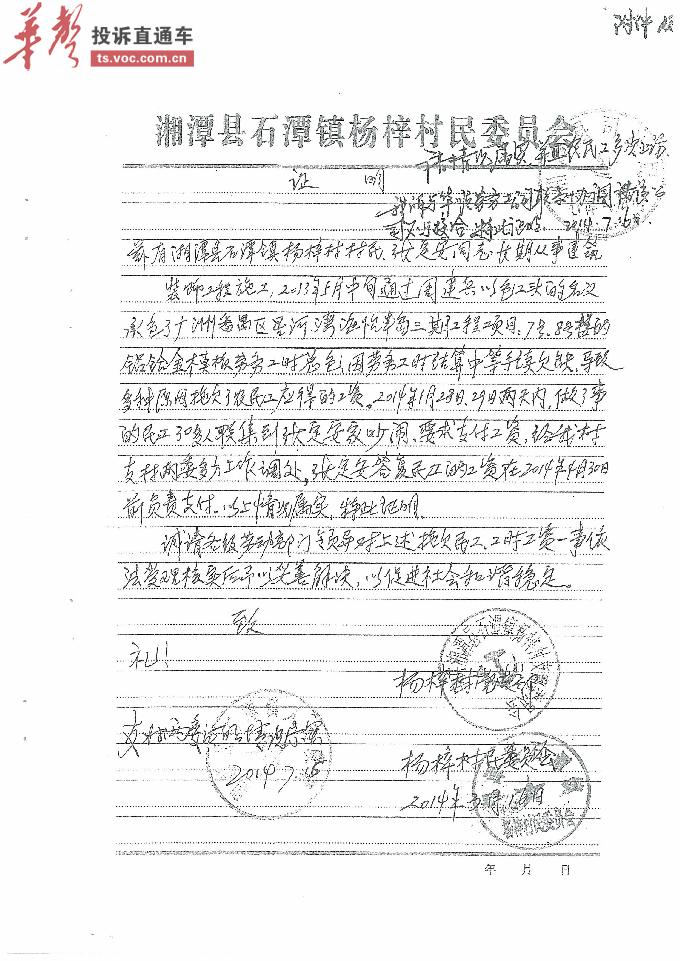 华声
投诉直通车
ts.voc.com.cn
附件
湘潭县石潭镇杨梓村民委员会
情况属实
农民工多次上访
2014.7.16
证 明
兹有湘潭县石潭镇杨梓村村民张定安同志长期从事建筑
装饰工程施工,2013年5月中旬通过周建兵以包工头的名义
承包了广州番禺区星河湾海怡半岛三期工程项目7#、8#楼的
铝合金模板劳务工时总包,因劳务工时结算中等手续欠缺,导致
多种原因拖欠了农民工应得的工资。2014年1月28日、29日两天内,做了事
的民工30多人联集到张定安家吵闹,要求支付工资,经我村
支村两委多方工作调处,张定安答复民工的工资在2014年4月30日
前负责支付。以上情况属实,特此证明。
调请各级劳动部门领导对上述拖欠民工工时工资一事依
法受理核实后予以妥善解决,以促进社会和谐稳定。
致
礼!
杨梓村党支部
情况属实
2014.7.16
杨梓村民委员会
2014年
年 月 日